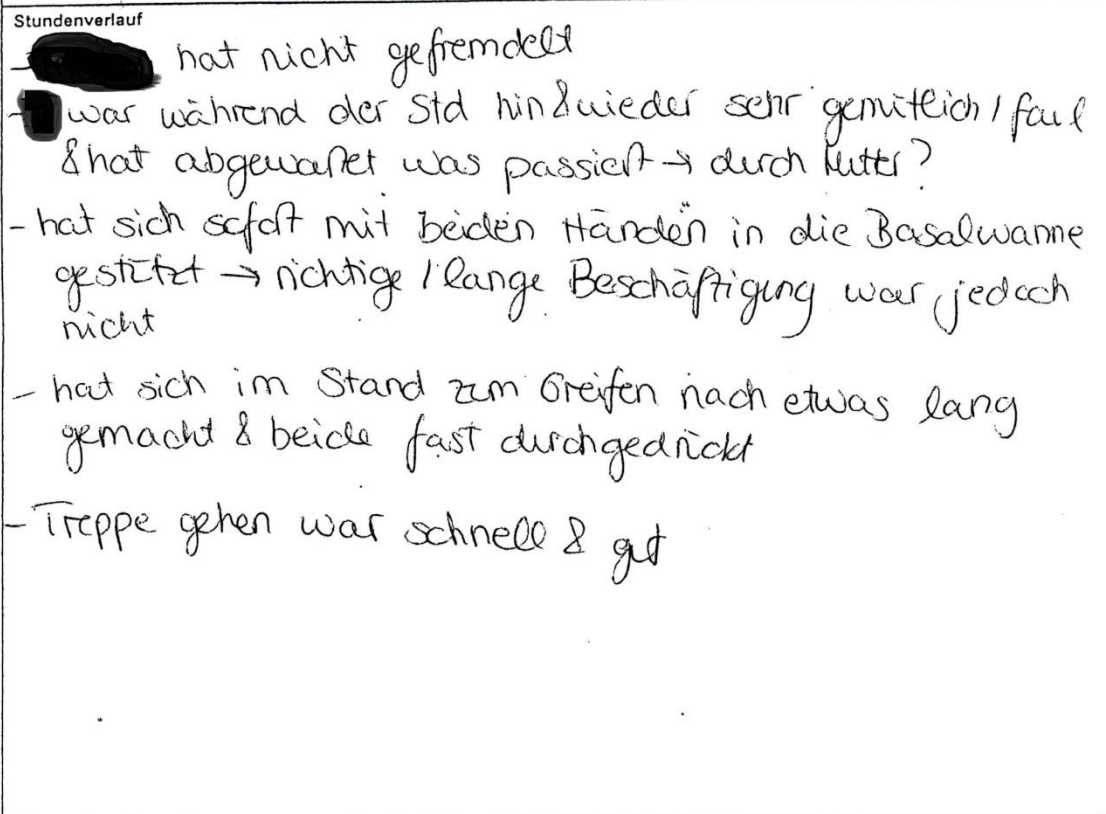 Stundenverlauf
- hat nicht gefremdelt
- war während der Std hin & wieder sehr gemütlich / faul
& hat abgewartet was passiert → durch Mutter?
- hat sich sofort mit beiden Händen in die Basalwanne
gestützt → richtige / lange Beschäftigung war jedoch
nicht
- hat sich im Stand zum Greifen nach etwas lang
gemacht & beide fast durchgedrückt
- Treppe gehen war schnell & gut